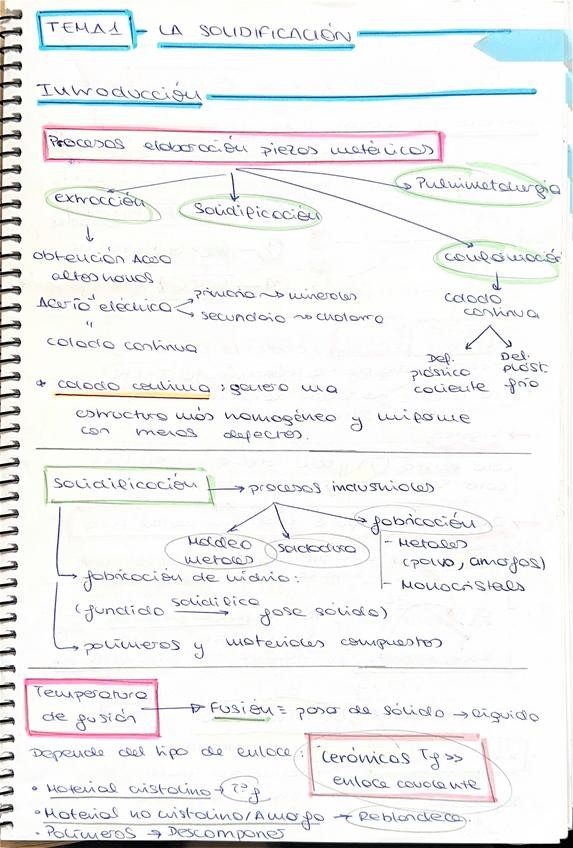 TEMA 1 - LA SOLIDIFICACIÓN
Introducción
Procesos elaboración piezas metálicas
extracción
Solidificación
Pulvimetalurgia
conformación
obtención Acero
altos hornos
Acería eléctrica
primaria ~> minerales
secundaria ~> chatarra
"
colada continua
colada
continua
Def.
plástico
caliente
Def.
plást
frío
* colada continua : genera una
estructura más homogénea y uniforme
con menos defectos.
Solidificación → procesos industriales
Moldeo
metales
Soldadura
fabricación
- Metales
(polvo, amorfos)
- Monocristales
→ fabricación de vidrio:
(fundido solidifica → fase sólida)
→ polímeros y materiales compuestos
Temperatura
de fusión
→ Fusión = pasa de sólido → líquido
Depende del tipo de enlace :
Cerámicas Tf >>
enlace covalente
• Material cristalino → Tª f
• Material no cristalino/Amorfo → Reblandece.
• Polímeros → Descomponen